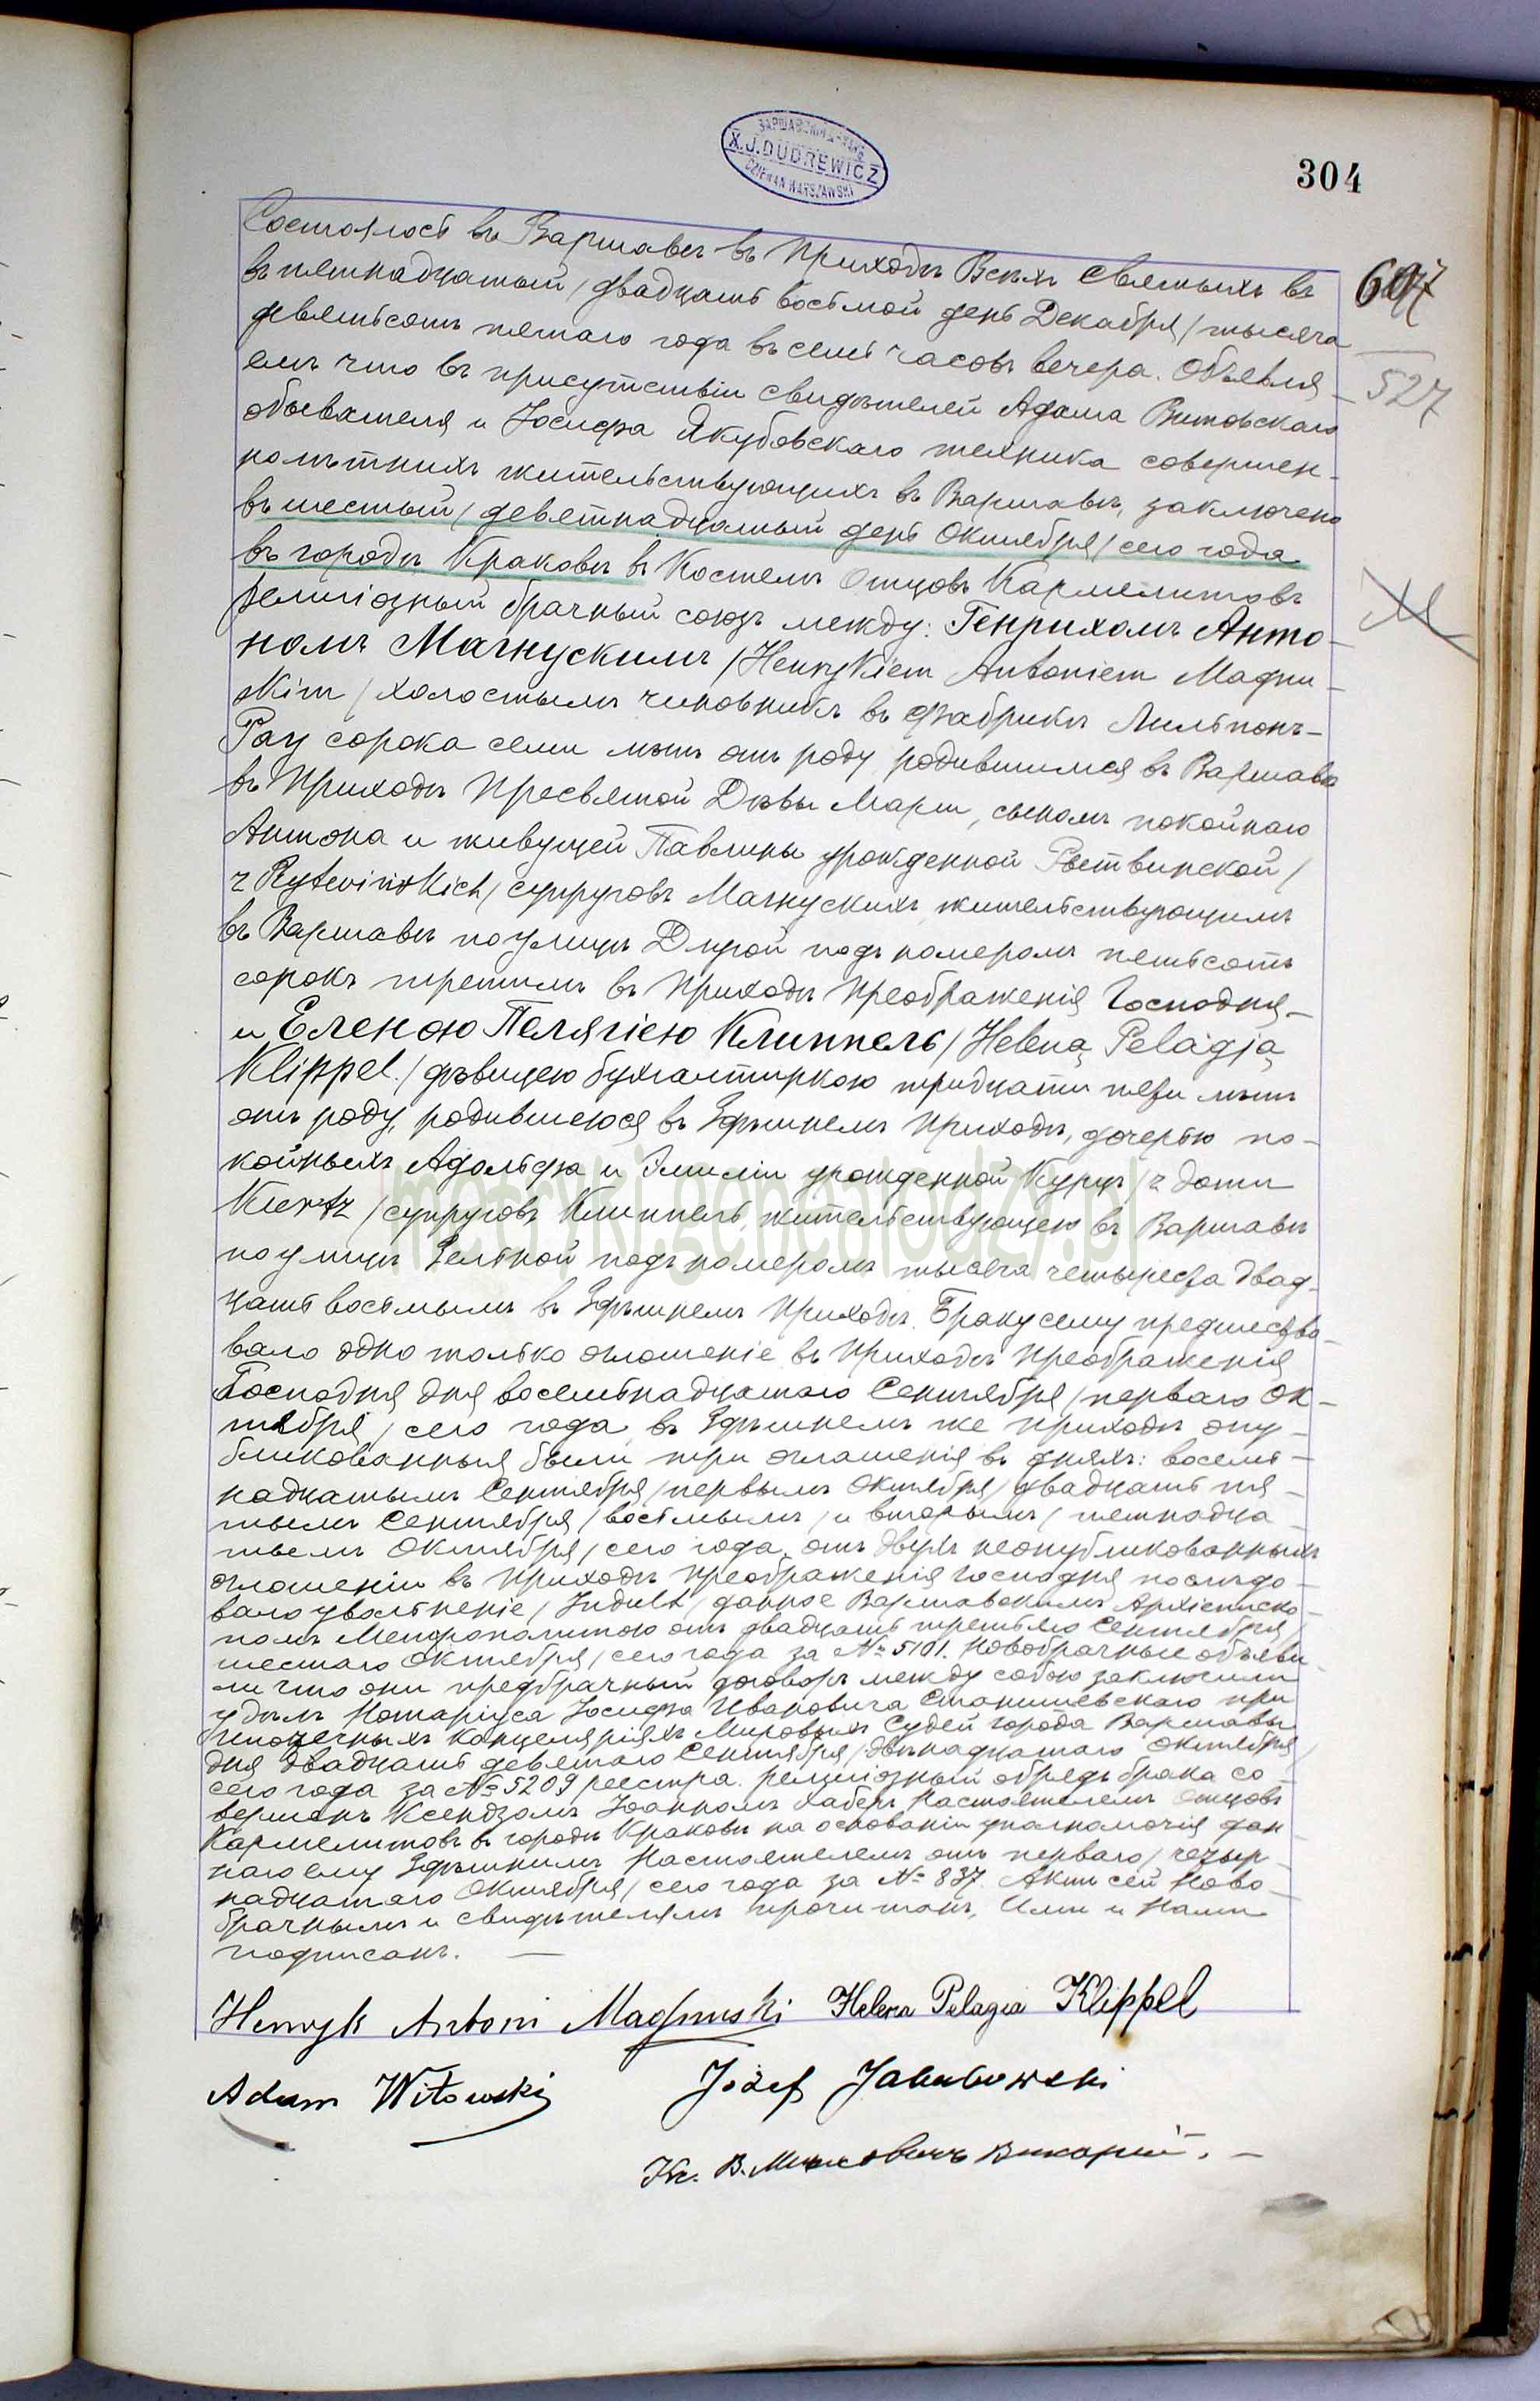 304
X.J.DUDREWICZ
DZIEKAN WARSZAWSKI
697
527
Состоялось въ Варшавѣ въ приходѣ Всѣхъ Святыхъ въ
въ пятнадцатый /двадцать восьмой день Декабря/ тысяча
девятьсотъ пятаго года въ семь часовъ вечера. Объявля-
емъ что въ присутствіи свидѣтелей Адама Витовскаго
обывателя и Іосифа Якубовскаго техника совершен-
нолѣтнихъ жительствующихъ въ Варшавѣ, заключено
въ шестый /девятнадцатый день Октября/ сего года
въ городѣ Краковѣ въ Костелѣ Отцовъ Кармелитовъ
религіозный брачный союзъ между: Генрихомъ Анто-
номъ Магнускимъ /Henrykiem Antoniem Magnu-
skim/ холостымъ чиновникъ въ фабрикѣ Лильпопъ-
Рау сорока семи лѣтъ отъ роду родившимся въ Варшавѣ
въ приходѣ Пресвятой Дѣвы Маріи, сыномъ покойнаго
Антона и живущей Павлины урожденной Рытвинской /
z Rytwińskich/ супруговъ Магнускихъ жительствующимъ
въ Варшавѣ по улицѣ Дикой подъ номеромъ пятьсотъ
сорокъ третимъ въ приходѣ Преображенія Господня-
и Еленою Пелягіею Клиппель /Heleną Pelagją
Klippel./ дѣвицею бухгалтиркою тридцати лѣтъ
отъ роду, родившеюся въ здѣшнемъ приходѣ, дочерью по-
койныхъ Адольфа и Эмиліи урожденной Курцъ /z domu
Kurtz/ супруговъ Клиппель, жительствующею въ Варшавѣ
по улицѣ Зельной подъ номеромъ тысяча четыреста двад-
цать восьмымъ въ здѣшнемъ приходѣ. Браку сему предшество-
вало одно только оглашеніе въ приходѣ Преображенія
Господня дня восемнадцатаго Сентября /перваго Ок-
тября/ сего года, въ здѣшнемъ же приходѣ опу-
бликованныя были три оглашенія въ дняхъ: восемь-
надцатымъ Сентября /первымъ Октября/ двадцать пя-
тымъ Сентября /восьмымъ/ и вторымъ /пятнадца-
тымъ Октября/ сего года, отъ двухъ неопубликованныхъ
оглашеніи въ приходѣ Преображенія Господня послѣдо-
вало увольненіе /Indult/ данное Варшавскимъ Архіеписко-
помъ Митрополитою отъ двадцать третьяго Сентября/
шестаго Октября/ сего года за № 5101. Новобрачные объяви-
ли что они предбрачный договоръ между собою заключили
у дѣлъ Нотаріуса Іосифа Ивановича Станишевскаго при
Ипотечныхъ Канцеляріяхъ Мировыхъ Судей города Варшавы
дня двадцать девятаго Сентября /двѣнадцатаго Октября/
сего года за № 5209 реестра. Религіозный обрядъ брака со-
вершенъ Ксендзомъ Іоанномъ Настоятелемъ Отцовъ
Кармелитовъ въ городѣ Краковѣ на основаніи уполномочія дан-
наго ему здѣшнимъ Настоятелемъ отъ перваго /четыр-
надцатаго Октября/ сего года за № 837. Актъ сей Ново-
брачнымъ и свидѣтелямъ прочитанъ, Ими и Нами
подписанъ. —
Henryk Antoni Magnuski Helena Pelagia Klippel
Adam Witowski Józef Jakubowski
Кс. В. Викарій. —
metryki.genealodzy.pl